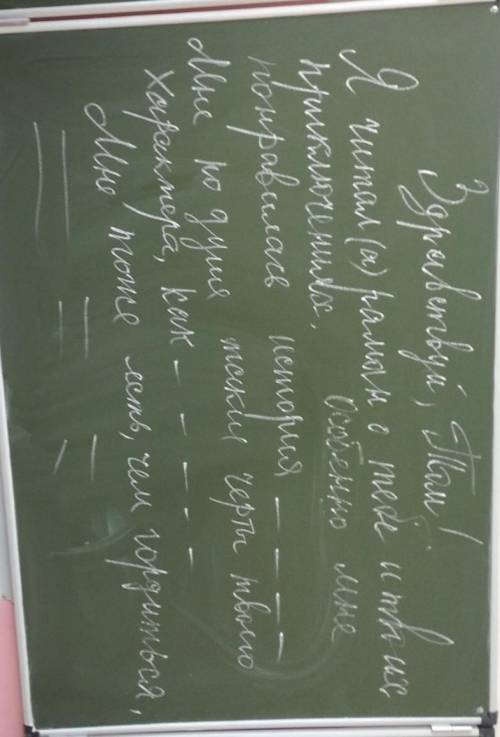 Здравствуй, Том!
Я читал(а) роман о тебе и твоих
приключениях. Особенно мне
понравилась история – – – –
Мне по душе такие черты твоего
характера, как – – – – –
Мне тоже есть, чем гордиться,